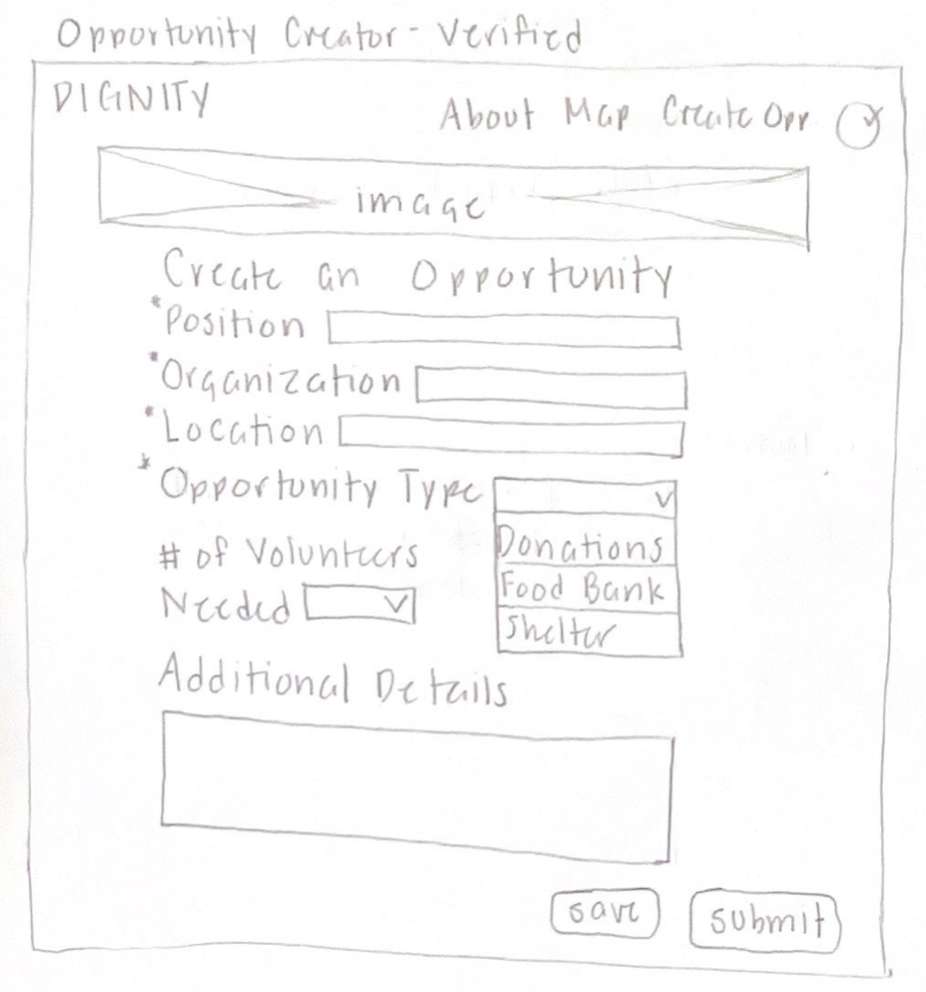 Opportunity Creator - Verified
DIGNITY
About Map Create Opp
image
Create an Opportunity
*Position
*Organization
*Location
*Opportunity Type
Donations
Food Bank
Shelter
# of Volunteers
Needed
Additional Details
save
submit